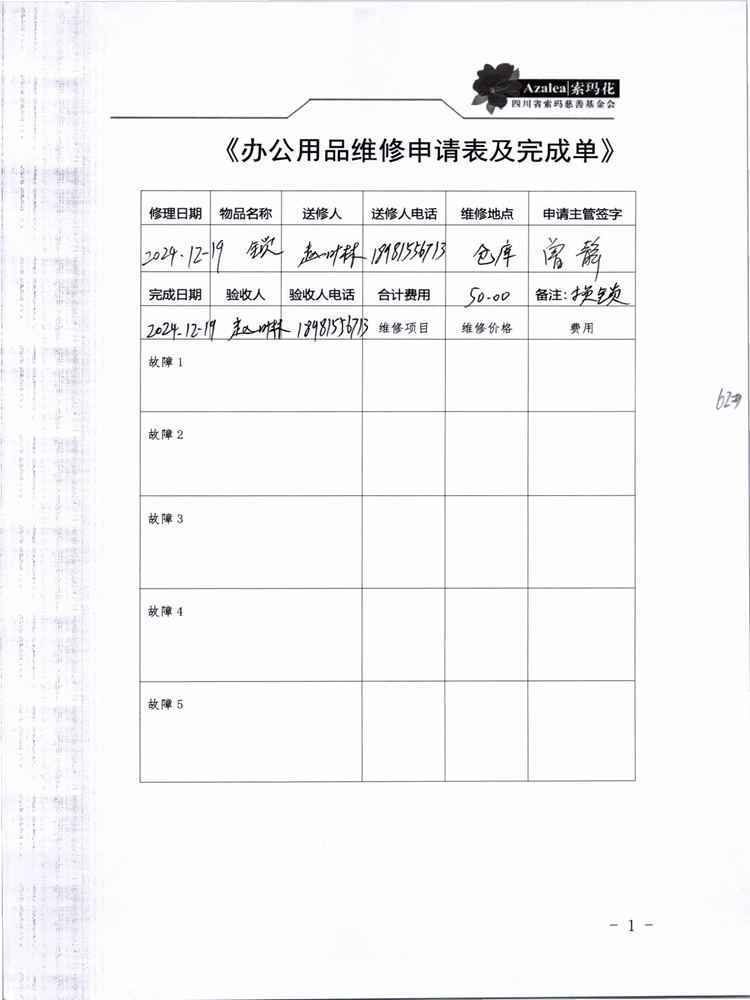 Azalea|索玛花
四川省索玛慈善基金会
《办公用品维修申请表及完成单》
修理日期 物品名称 送修人 送修人电话 维修地点 申请主管签字
2024.12-19 锁 赵叶林 18981556713 仓库 曾静
完成日期 验收人 验收人电话 合计费用 50.00 备注:换锁
2024.12-19 赵叶林 18981556713 维修项目 维修价格 费用
故障 1
故障 2
故障 3
故障 4
故障 5
- 1 -